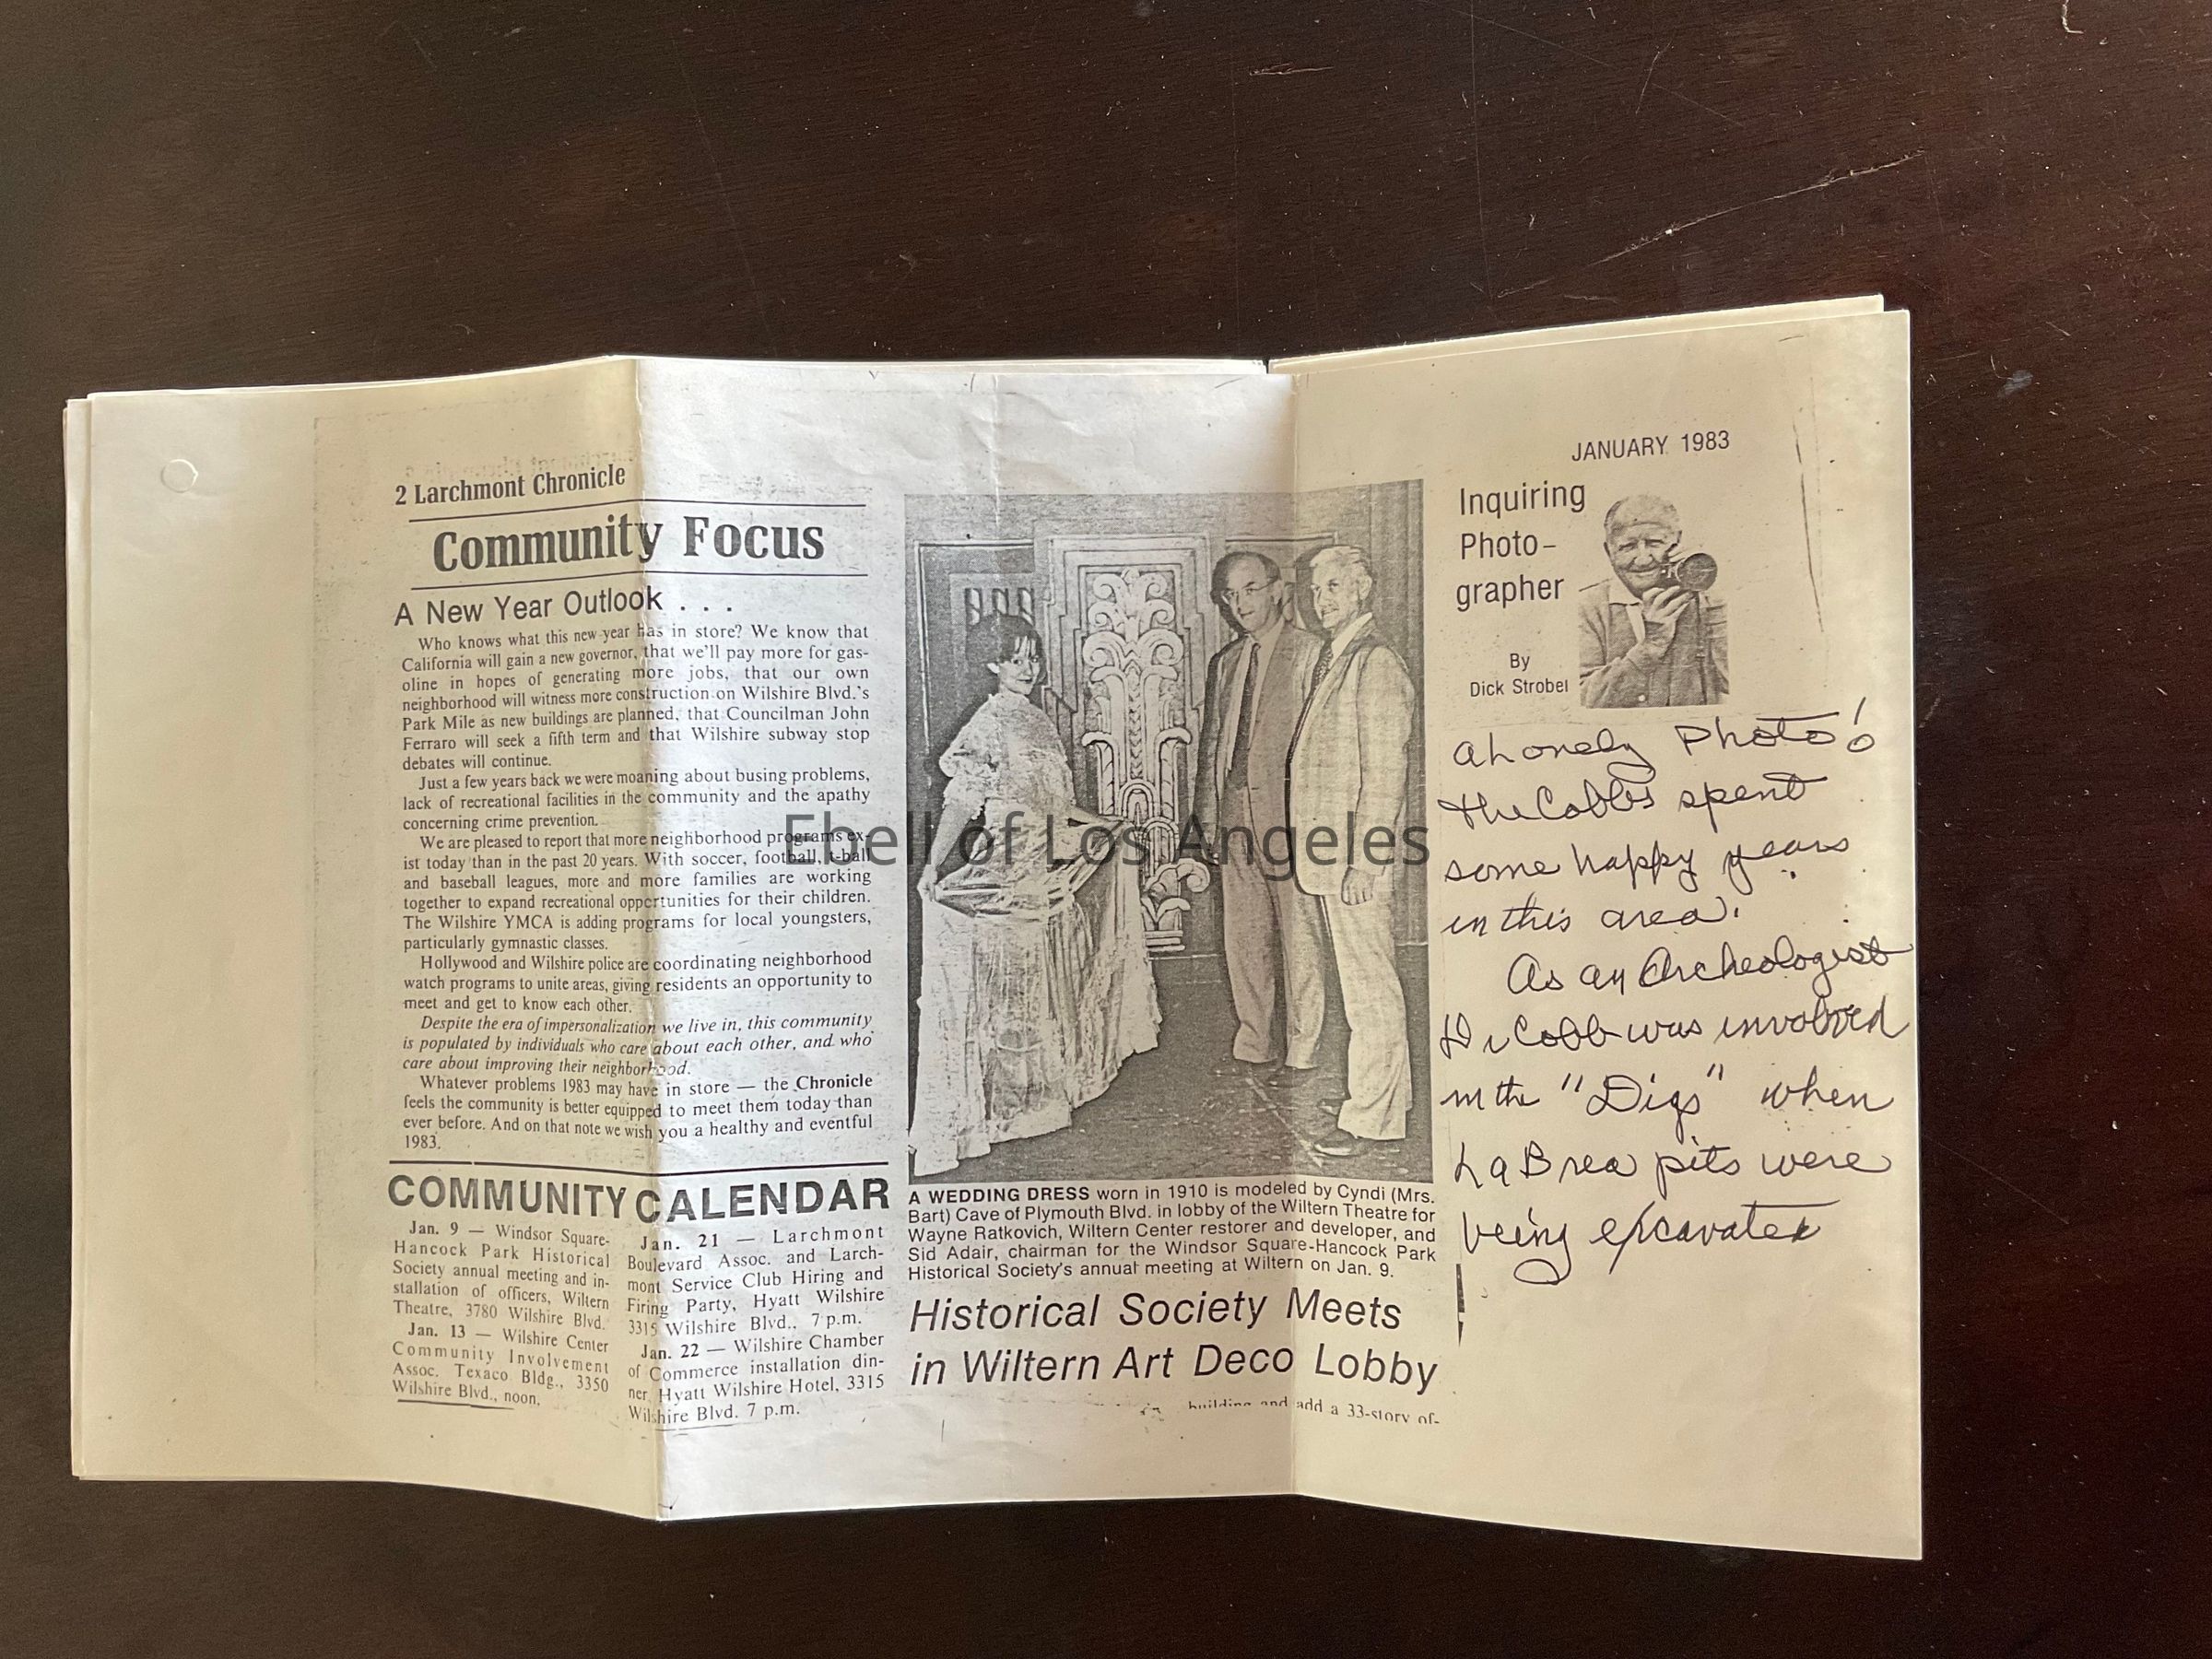 2 Larchmont Chronicle
Community Focus
A New Year Outlook . . .
Who knows what this new year has in store? We know that
California will gain a new governor, that we'll pay more for gas-
oline in hopes of generating more jobs, that our own
neighborhood will witness more construction on Wilshire Blvd.'s
Park Mile as new buildings are planned, that Councilman John
Ferraro will seek a fifth term and that Wilshire subway stop
debates will continue.
Just a few years back we were moaning about busing problems,
lack of recreational facilities in the community and the apathy
concerning crime prevention.
We are pleased to report that more neighborhood programs ex-
ist today than in the past 20 years. With soccer, football, t-ball
and baseball leagues, more and more families are working
together to expand recreational opportunities for their children.
The Wilshire YMCA is adding programs for local youngsters,
particularly gymnastic classes.
Hollywood and Wilshire police are coordinating neighborhood
watch programs to unite areas, giving residents an opportunity to
meet and get to know each other.
Despite the era of impersonalization we live in, this community
is populated by individuals who care about each other, and who
care about improving their neighborhood.
Whatever problems 1983 may have in store — the Chronicle
feels the community is better equipped to meet them today than
ever before. And on that note we wish you a healthy and eventful
1983.
COMMUNITY CALENDAR
Jan. 9 — Windsor Square-
Hancock Park Historical
Society annual meeting and in-
stallation of officers, Wiltern
Theatre, 3780 Wilshire Blvd.
Jan. 13 — Wilshire Center
Community Involvement
Assoc. Texaco Bldg., 3350
Wilshire Blvd., noon.
Jan. 21 — Larchmont
Boulevard Assoc. and Larch-
mont Service Club Hiring and
Firing Party, Hyatt Wilshire
3315 Wilshire Blvd., 7 p.m.
Jan. 22 — Wilshire Chamber
of Commerce installation din-
ner, Hyatt Wilshire Hotel, 3315
Wilshire Blvd. 7 p.m.
A WEDDING DRESS worn in 1910 is modeled by Cyndi (Mrs.
Bart) Cave of Plymouth Blvd. in lobby of the Wiltern Theatre for
Wayne Ratkovich, Wiltern Center restorer and developer, and
Sid Adair, chairman for the Windsor Square-Hancock Park
Historical Society's annual meeting at Wiltern on Jan. 9.
Historical Society Meets
in Wiltern Art Deco Lobby
building and add a 33-story of-
JANUARY 1983
Inquiring
Photo-
grapher
By
Dick Strobel
Photo!
the Cobbs spent
some happy years
in this area.
As an Archeologist
Dr Cobb was involved
in the "Digs" when
La Brea pits were
being excavated
Ebell of Los Angeles